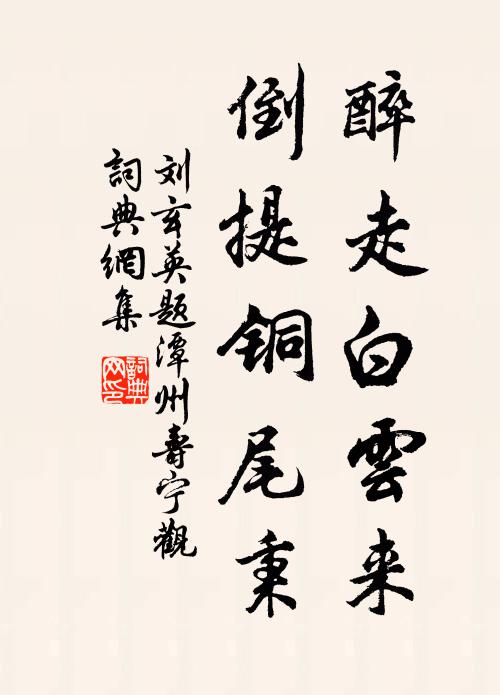 醉走白雲来
倒提铜尾秉
刘玄英题潭州壽宁觀
詞典網集
詞典网印